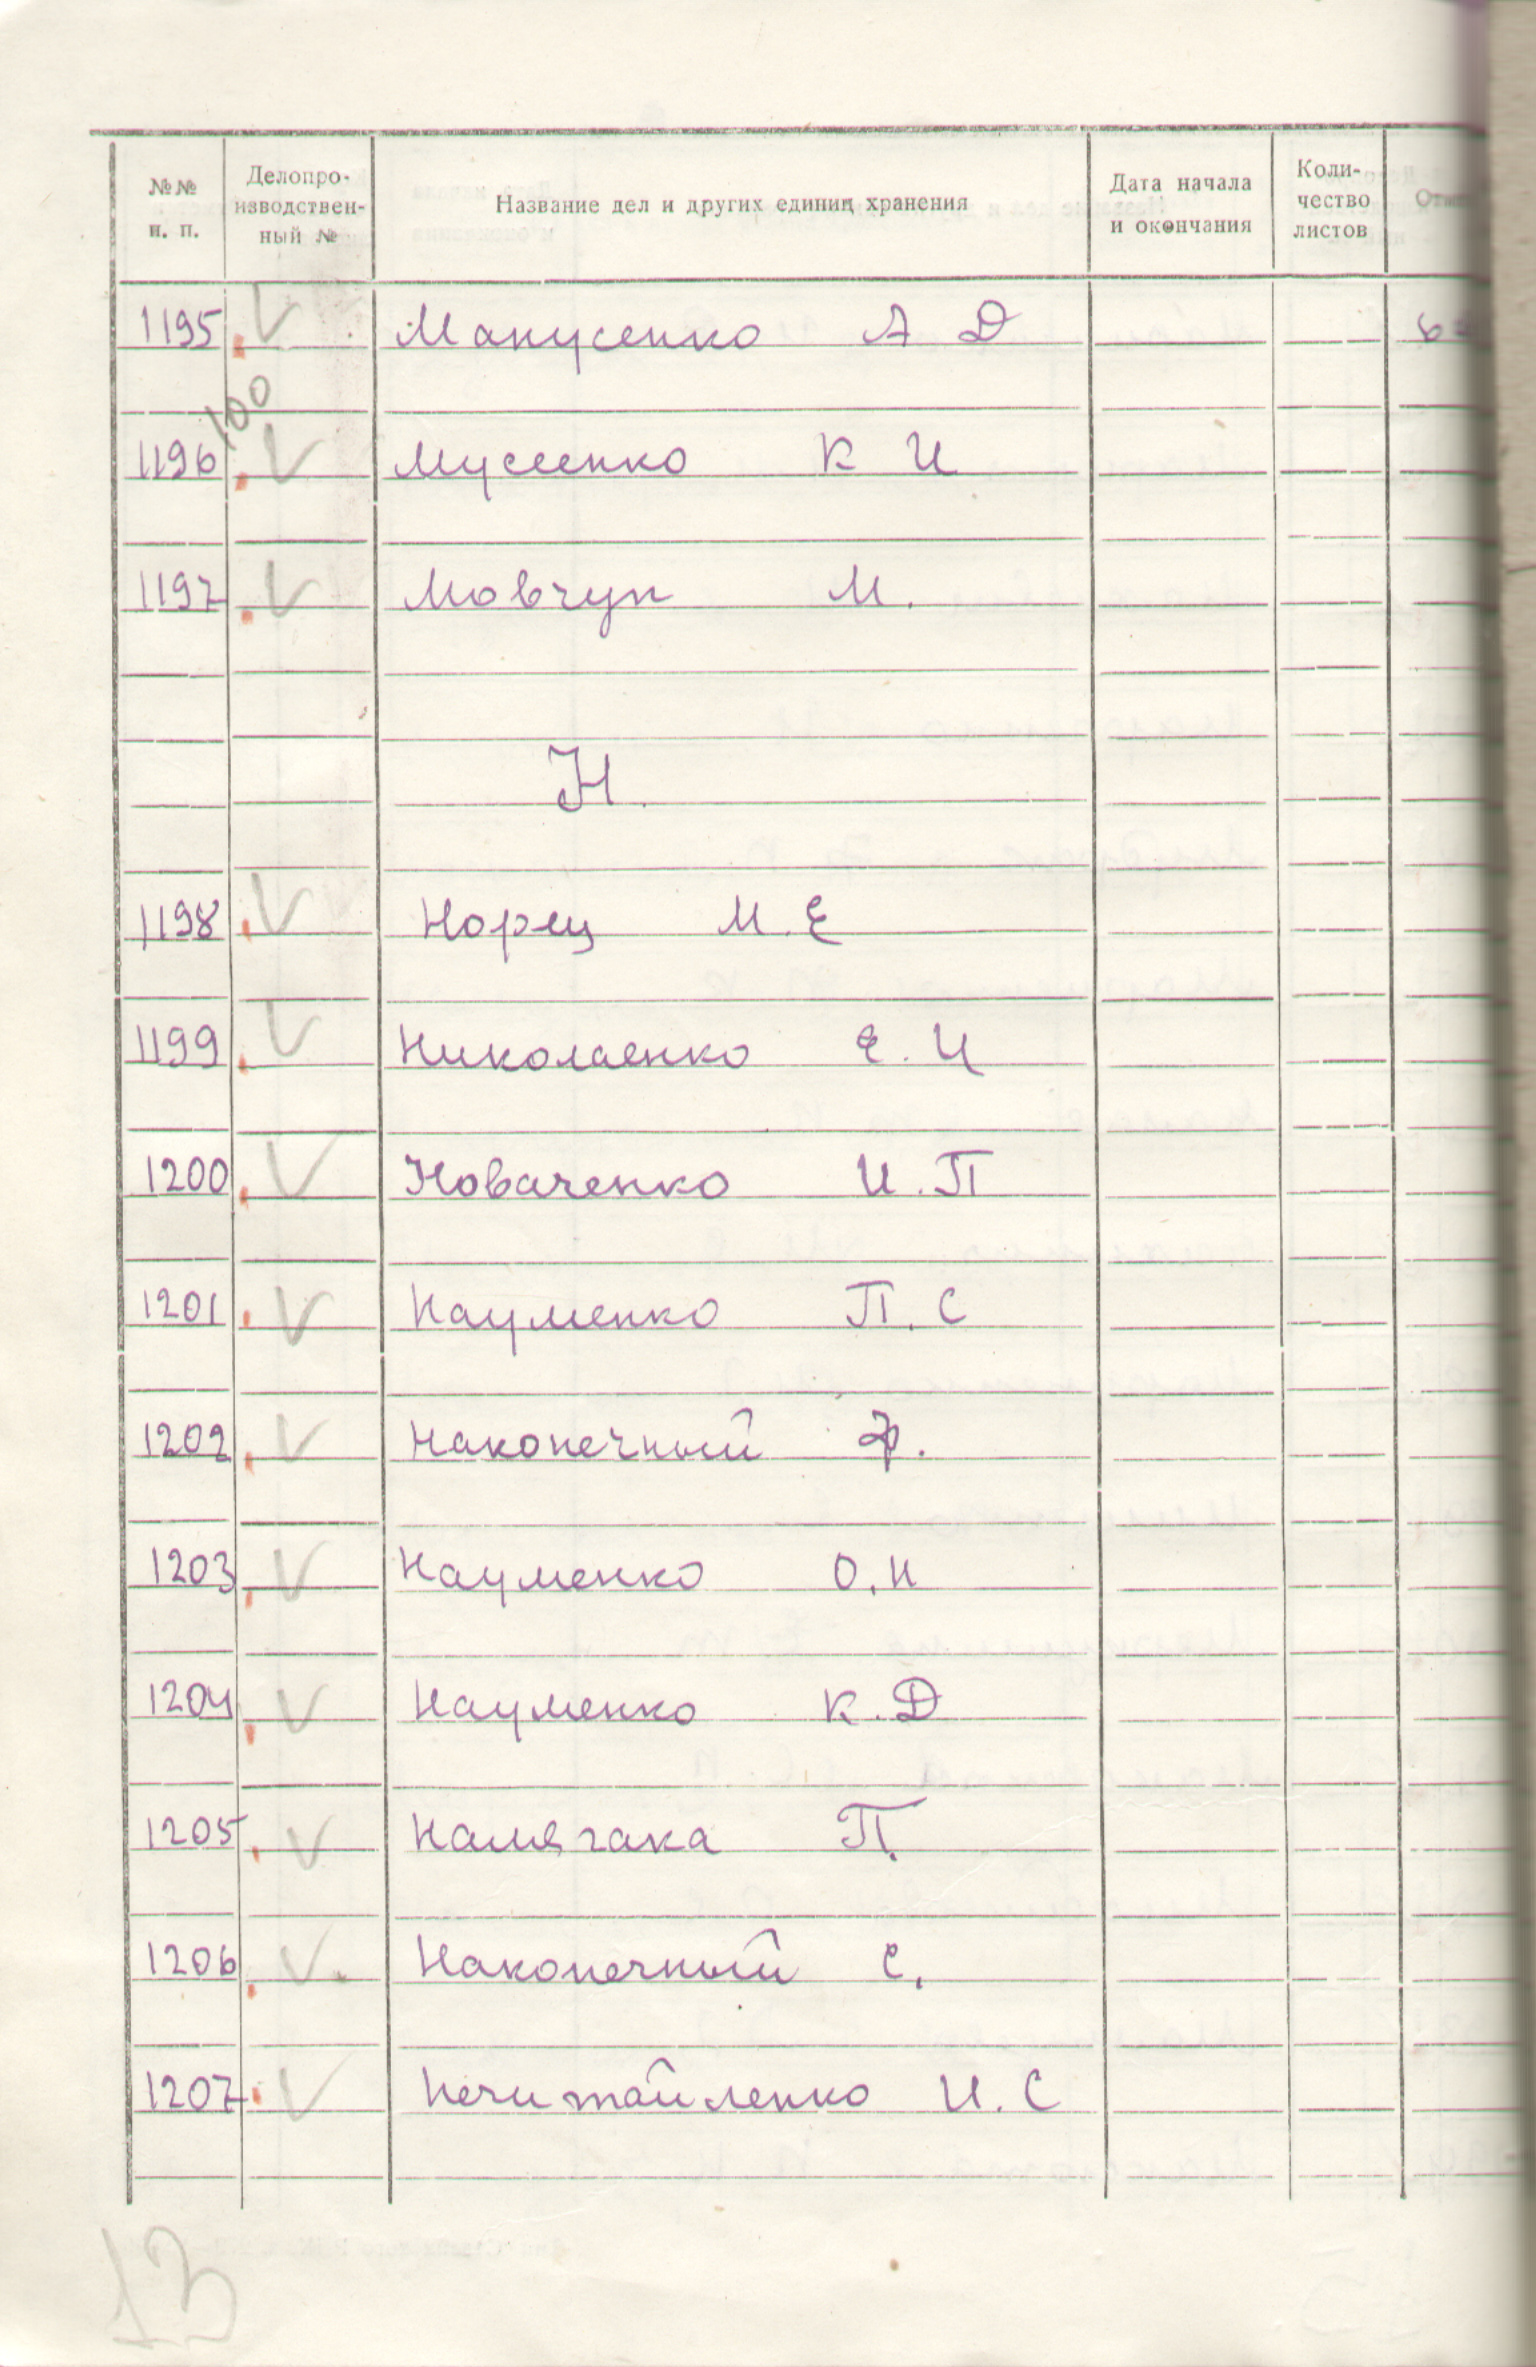 №№ п. п. Делопроизводственный № Название дел и других единиц хранения Дата начала и окончания Количество листов
1195 Манусенко А Д
100
1196 Мусиенко К И
1197 Мовчун М.
Н.
1198 Норец М. Е
1199 Николаенко Е. И
1200 Новаченко И. П
1201 Науменко П. С
1202 Наконечный Ф.
1203 Науменко О. Н
1204 Науменко К. Д
1205 Намячака П.
1206 Наконечный С.
1207 Нечитайленко И. С
13